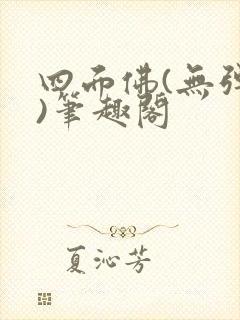 四面佛(無彈
)筆趣閣
夏沁芳